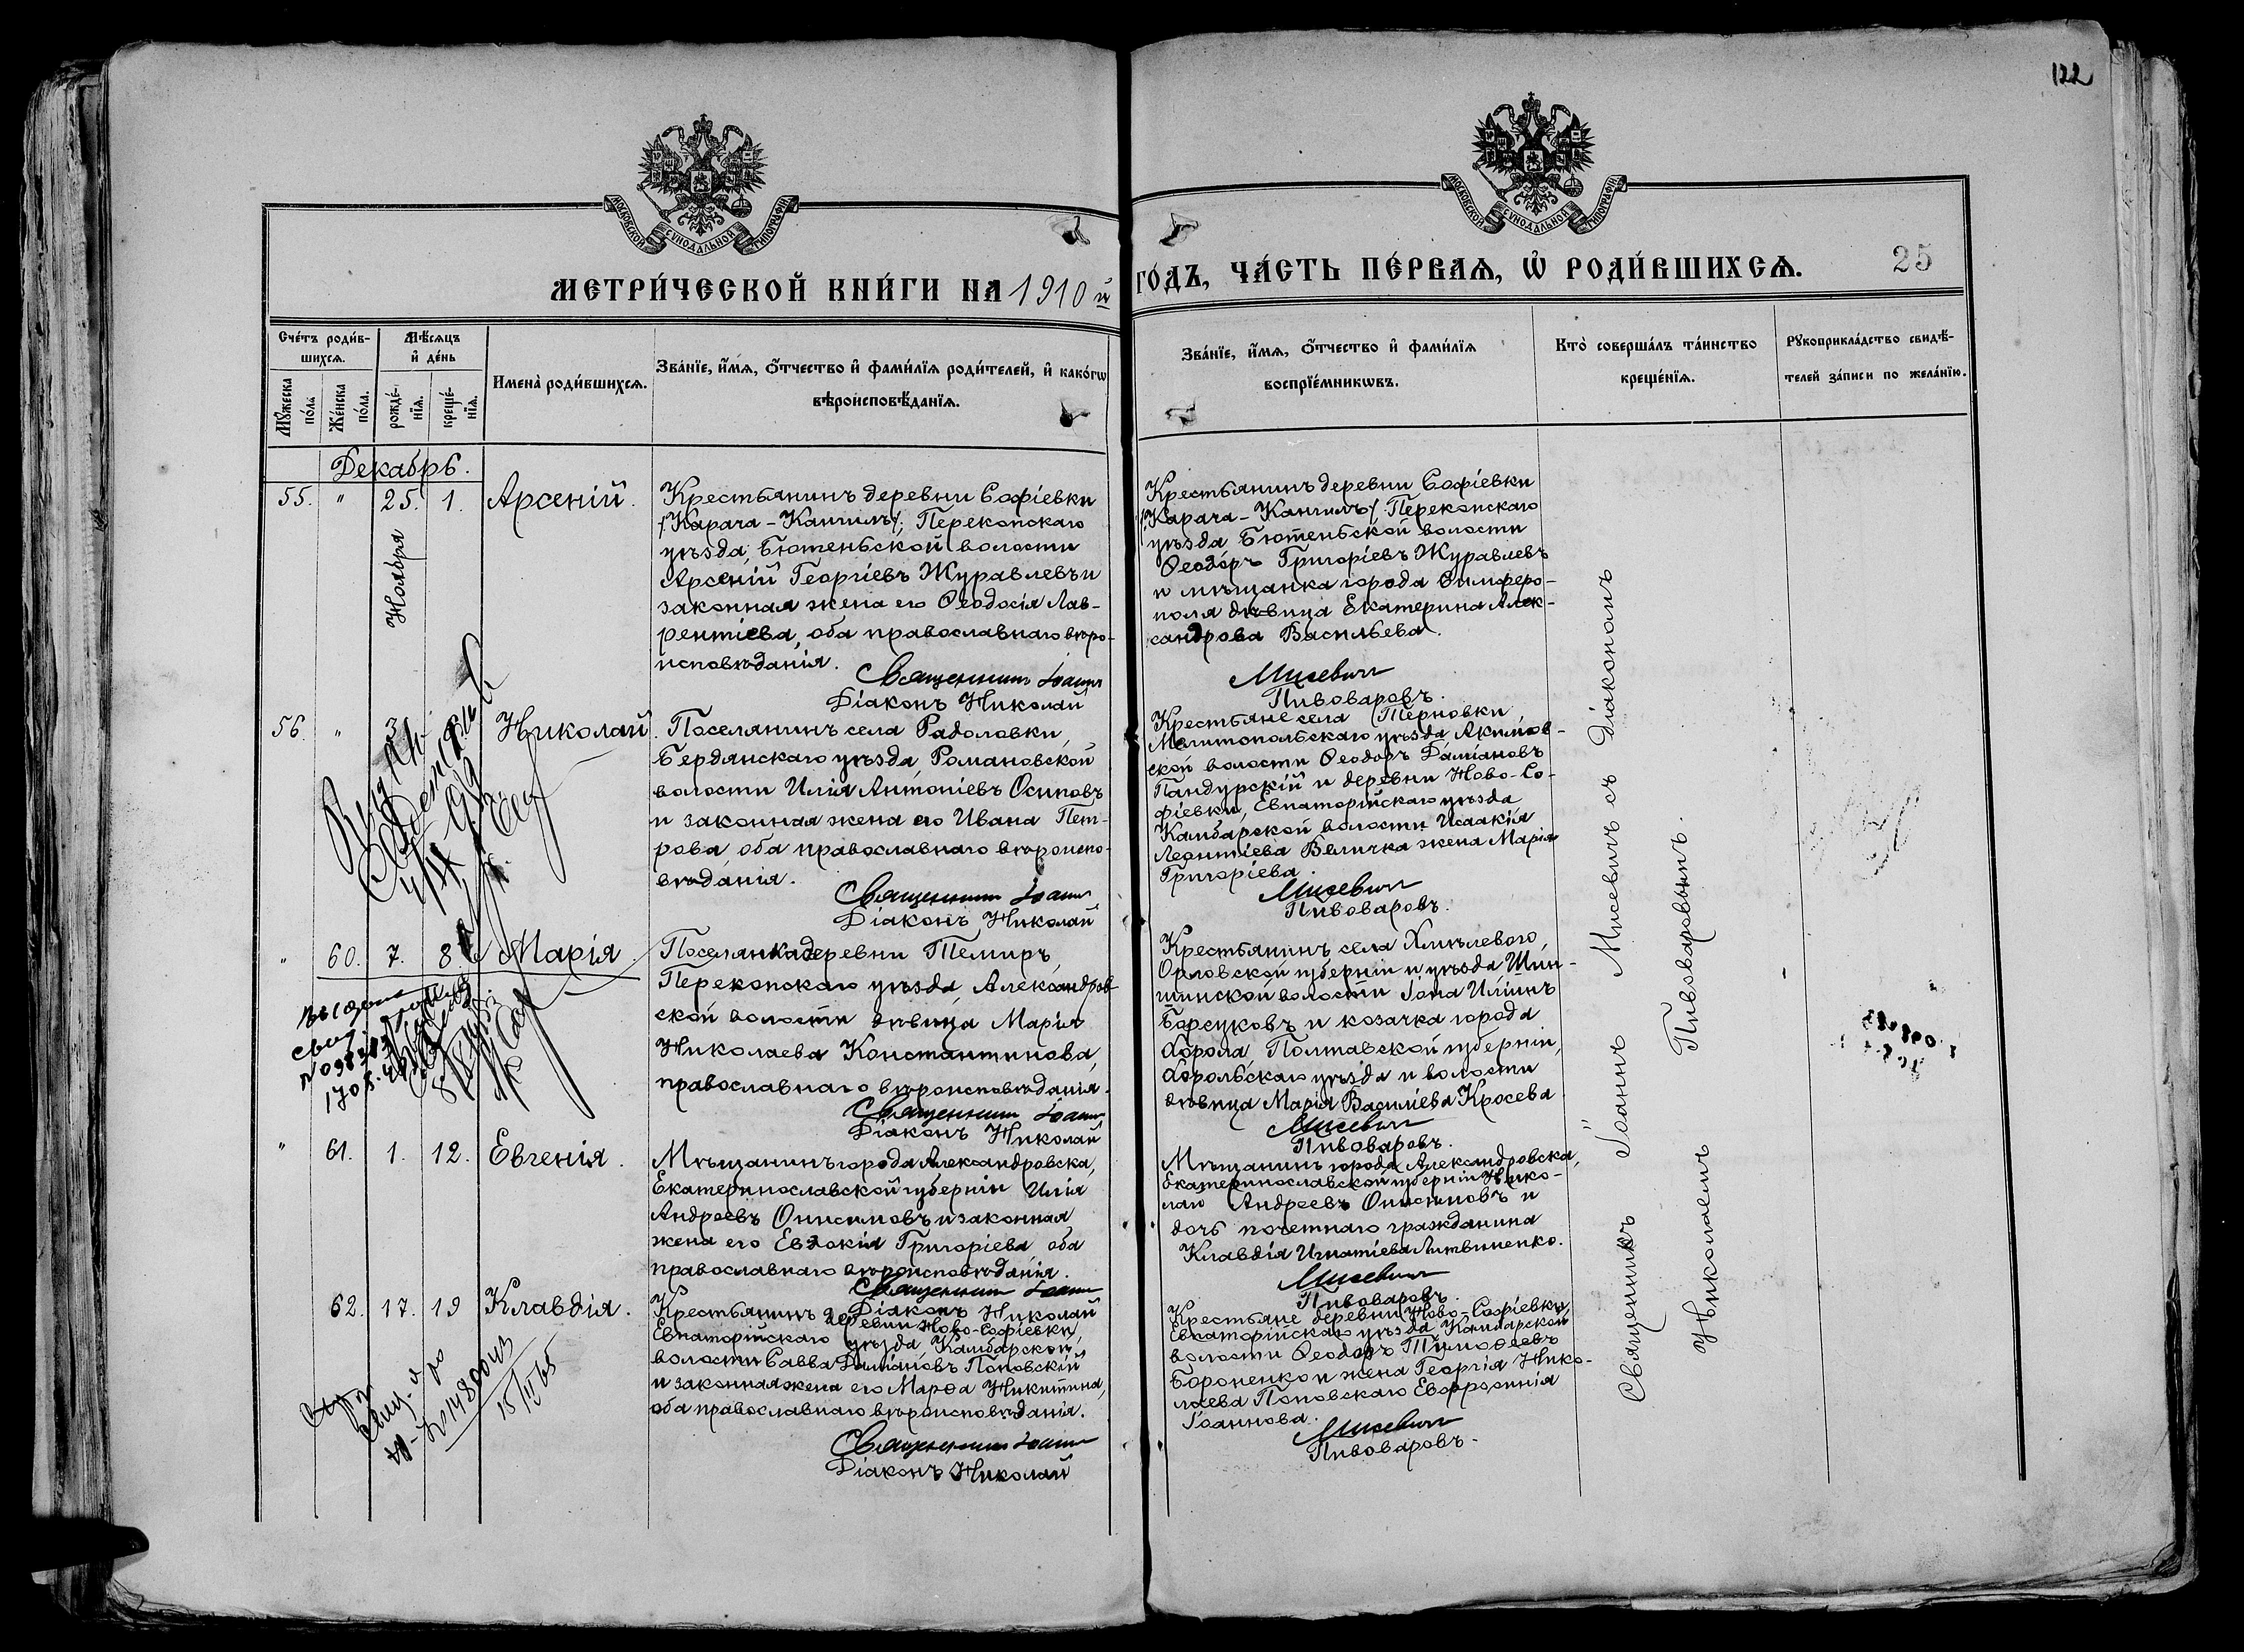 122
МОСКОВСКОЙ СѴНОДАЛЬНОЙ ТИПОГРАФІИ
МОСКОВСКОЙ СѴНОДАЛЬНОЙ ТИПОГРАФІИ
МЕТРИ́ЧЕСКОЙ КНИ́ГИ НА 1910 й ГО́ДЪ, ЧА́СТЬ ПЕ́РВАЯ, Ѿ РОДИ́ВШИХСЯ.
25
Сче́тъ роди́в-
шихся.
Мѣ́сяцъ
и де́нь
Мꙋ́жеска
по́ла
Же́нска
по́ла.
рожде́-
нїя.
креще́-
нїя.
Имена̀ роди́вшихся.
Зва́нїе, и́мя, ѻ́тчество и фами́лїя роди́телей, и како́гѡ
вѣроисповѣ́данїя.
Зва́нїе, и́мя, ѻ́тчество и фами́лїя
воспрїе́мникѡвъ.
Кто̀ соверша́лъ та́инство
креще́нїя.
Рꙋкоприкла́дство свидѣ́-
телей за́писи по жела́нїю.
Декабрь.
55. " 25. 1. Арсеній.
Ноября
Крестьянинъ деревни Софіевки
/Карача-Кангилъ/, Перекопскаго
уѣзда, Бютеньской волости
Арсеній Георгіевъ Журавлевъ и
законная жена его Ѳеодосія Лав-
рентіева, оба православнаго вѣро-
исповѣданія.
Священникъ Іоаннъ
Діаконъ Николай
Крестьянинъ деревни Софіевки
/Карача-Кангилъ/ Перекопскаго
уѣзда Бютеньской волости
Ѳеодоръ Григоріевъ Журавлевъ
и мѣщанка города Симферо-
поля дѣвица Екатерина Алек-
сандрова Васильева.
Мисевичъ
Пивоваровъ.
56. " 3 Николай.
Поселянинъ села Радоловки,
Бердянскаго уѣзда, Романовской
волости Илія Антоніевъ Осиповъ
и законная жена его Ивана Пет-
рова, оба православнаго вѣроиспо-
вѣданія.
Священникъ Іоаннъ
Діаконъ Николай
Крестьяне села Терновки
Мелитопольскаго уѣзда Акимов-
ской волости Ѳеодоръ Даміановъ
Пандурскій и деревни Ново-Со-
фіевки, Евпаторійскаго уѣзда
Камбарской волости Исаакія
Леонтіева Величка жена Марія
Григоріева.
Мисевичъ
Пивоваровъ.
" 60. 7. 8 Марія.
Поселянка деревни Темиръ,
Перекопскаго уѣзда, Александров-
ской волости дѣвица Марія
Николаева Константинова,
православнаго вѣроисповѣданія.
Священникъ Іоаннъ
Діаконъ Николай
Крестьянинъ села Хмѣлевого,
Орловской губерніи и уѣзда
волости Іона Иліинъ
Борсуковъ и козачка города
Хорола, Полтавской губерніи,
Хорольскаго уѣзда и волости
дѣвица Марія Василіева Кросева
Мисевичъ
Пивоваровъ.
" 61. 1. 12. Евгенія.
Мѣщанинъ города Александровска,
Екатеринославской губерніи Илія
Андреевъ Онисимовъ и законная
жена его Евдокія Григоріева, оба
православнаго вѣроисповѣданія.
Священникъ Іоаннъ
Діаконъ Николай
Мѣщанинъ города Александровска,
Екатеринославской губерніи Нико-
лай Андреевъ Онисимовъ и
дочь почетнаго гражданина
Клавдія Игнатіева Литвиненко.
Мисевичъ
Пивоваровъ.
62. 17. 19 Клавдія.
Крестьянинъ деревни Ново-Софіевки,
Евпаторійскаго уѣзда, Камбарской
волости Савва Даміановъ Поповскій
и законная жена его Марѳа Никитина,
оба православнаго вѣроисповѣданія.
Священникъ Іоаннъ
Діаконъ Николай
Крестьяне деревни Ново-Софіевки,
Евпаторійскаго уѣзда, Камбарской
волости Ѳеодоръ Тимоѳеевъ
Бороненко и жена Георгія Нико-
лаева Поповскаго Евфросинія
Іоаннова.
Мисевичъ
Пивоваровъ.
№ 148004з
15/IV 65
Священникъ Іоаннъ Мисевичъ съ діакономъ
Николаемъ Пивоваровымъ.